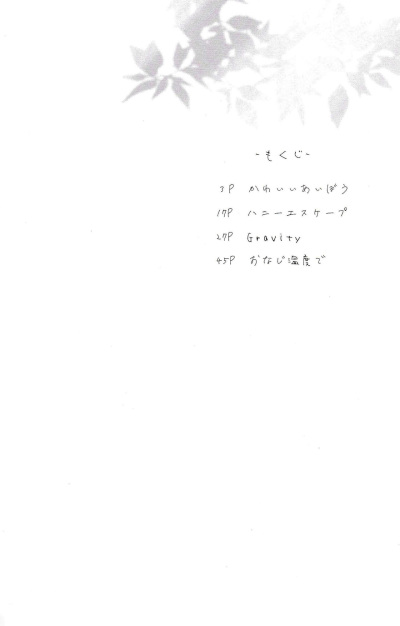 -もくじ-
3P かわいいあいぼう
17P ハニーエスケープ
27P Gravity
45P おなじ温度で